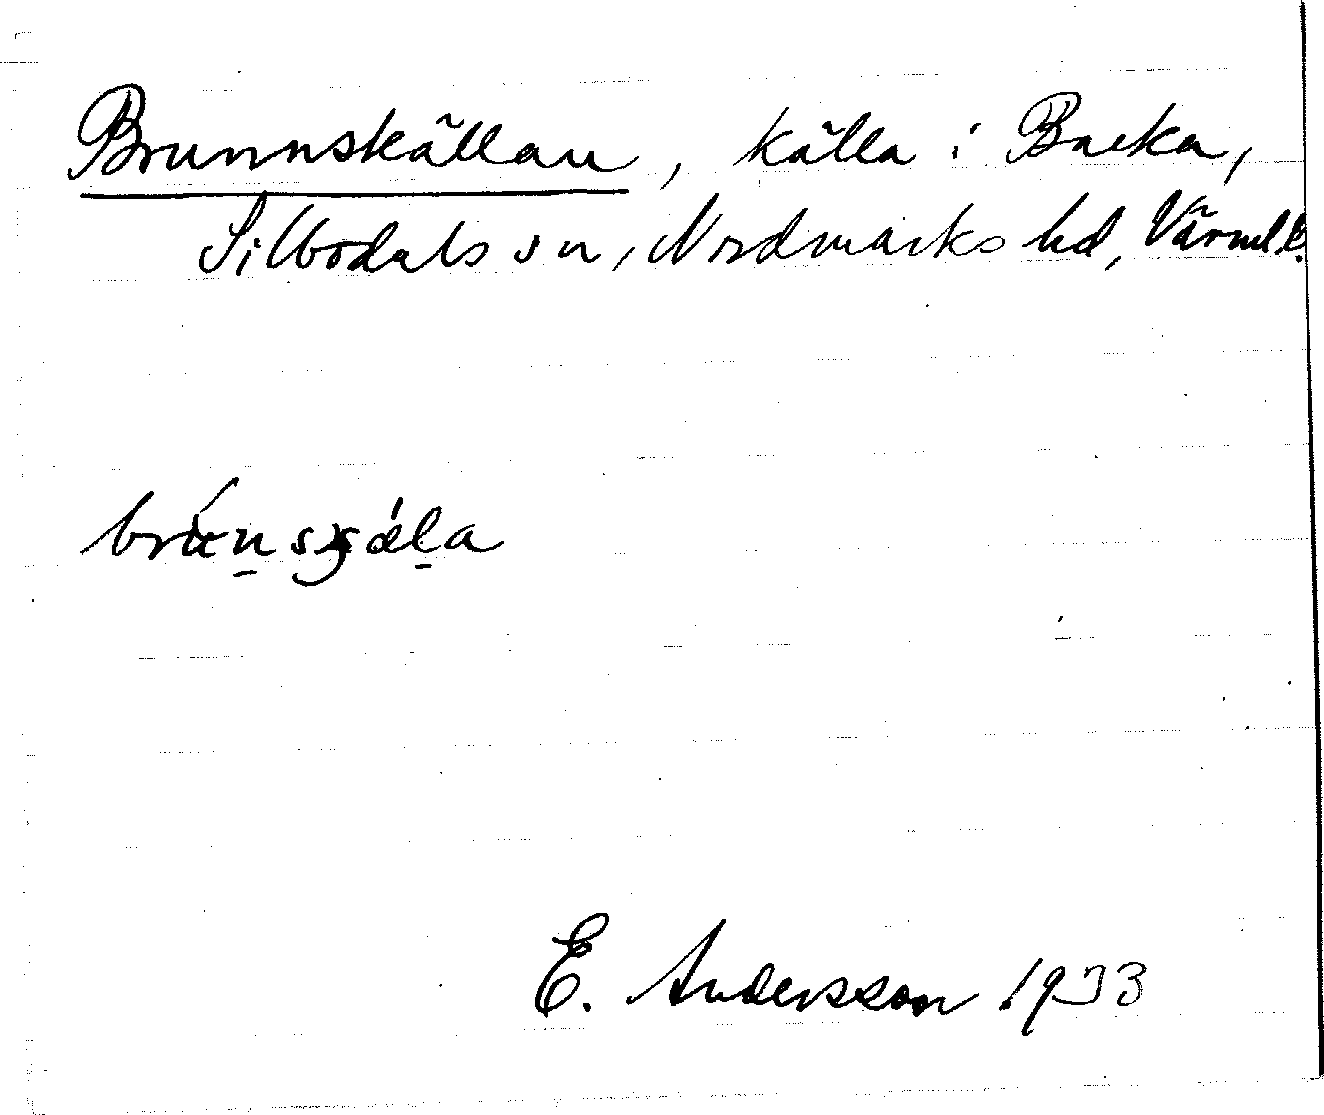 Brunnskällan, källa i Backa,
Silbodals sn, Nordmarks hd, Värml.
E. Andersson 1933